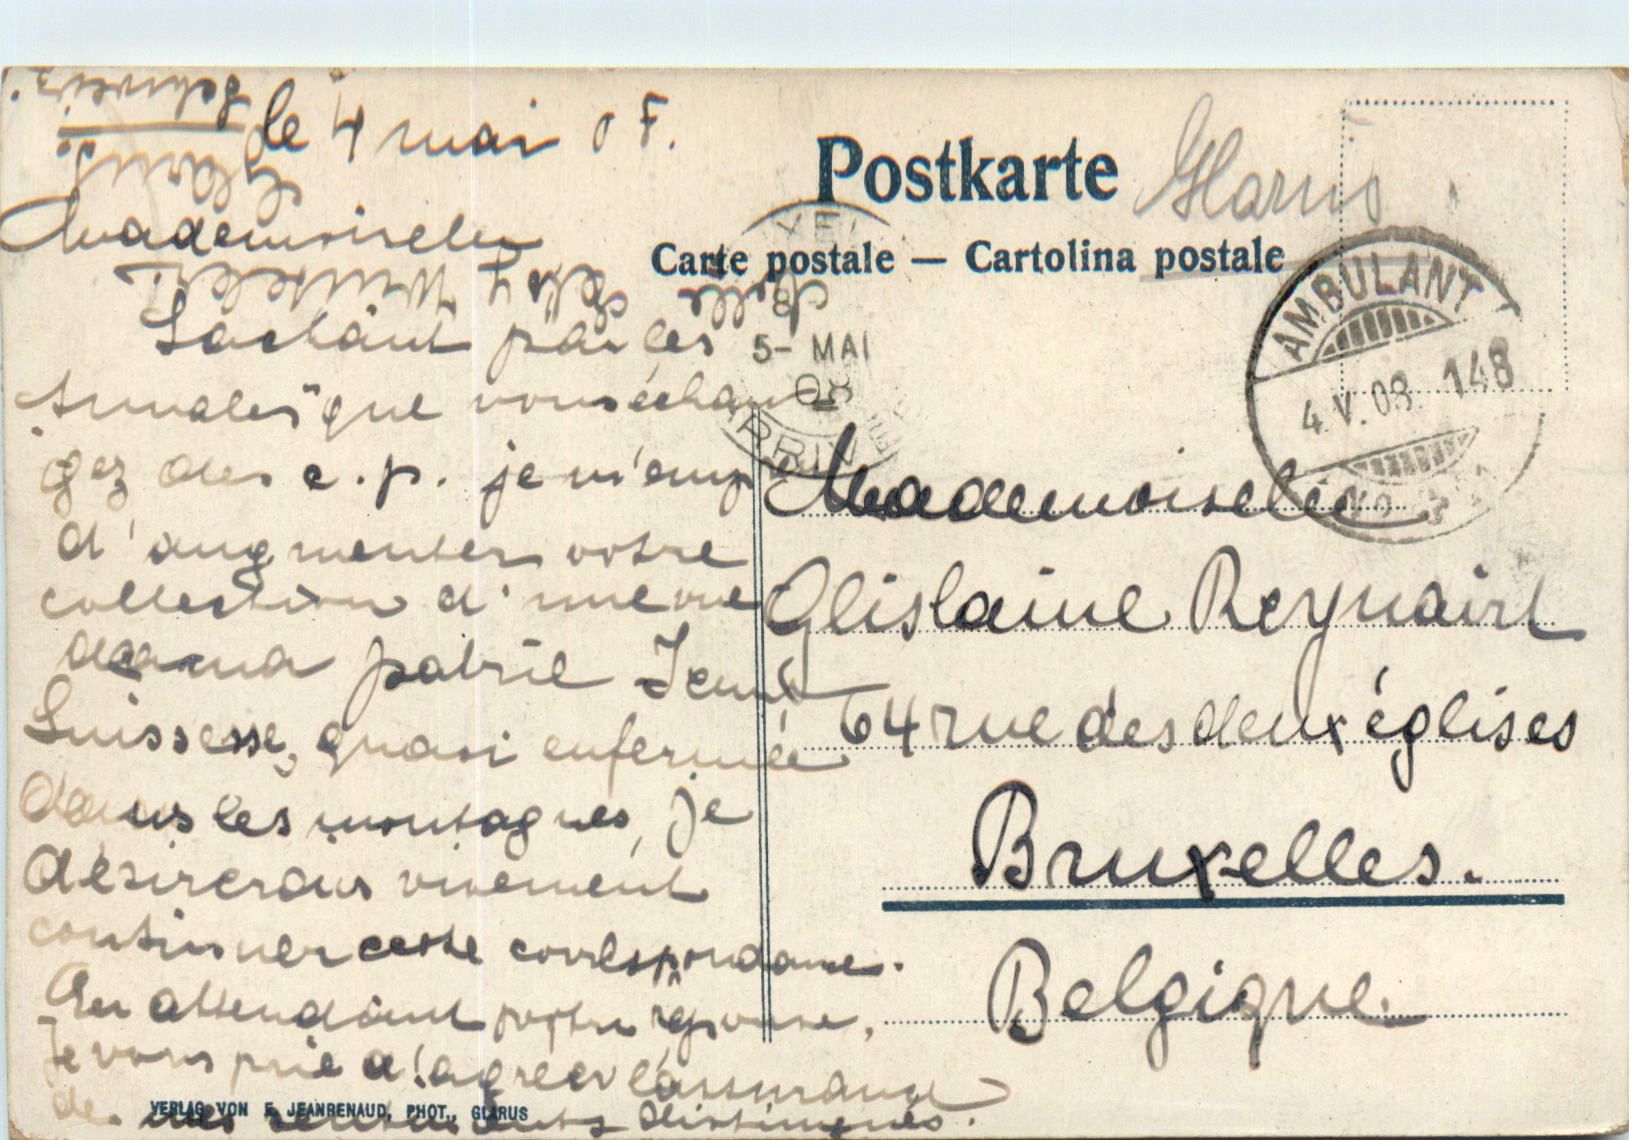 le 4 mai
Mademoiselle
Sachant par les
Annales que vous échan
gez des c. p. je m'emp
d'augmenter votre
collection d'une vue
de ma patrie
Suissesse, quasi enfermée
dans les montagnes, je
désirerais vivement
continuer cette correspondance.
En attendant votre réponse,
Je vous prie d'agréer l'assurance
de mes sentiments distingués.
Mlle Winteler
Glarus
Schweiz.
VERLAG VON F. JEANRENAUD, PHOT., GLARUS
Postkarte
Glarus
Carte postale — Cartolina postale
5- MAI
08
AMBULANT
4.V.08. 148
No
Mademoiselle
Ghislaine Reynaert
64 rue des deux églises
Bruxelles.
Belgique